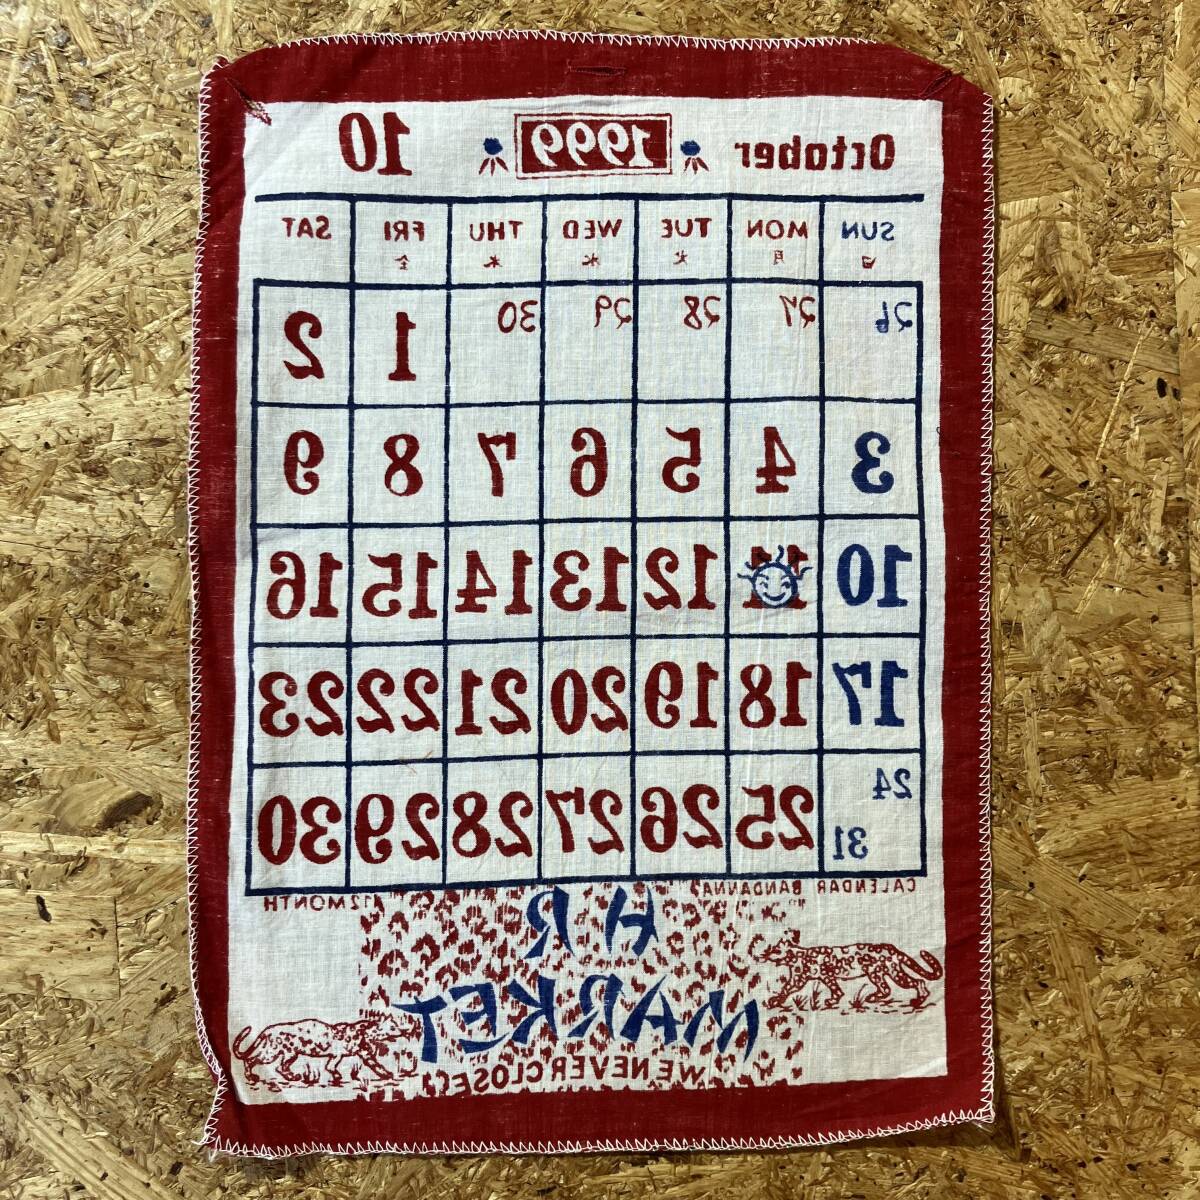 October 1999 10
SUN MON TUE WED THU FRI SAT
日 月 火 水 木 金
26 27 28 29 30 1 2
3 4 5 6 7 8 9
10 11 12 13 14 15 16
17 18 19 20 21 22 23
24 25 26 27 28 29 30
31
CALENDAR BANDANNA 12 MONTH
H.R
MARKET
WE NEVER CLOSE